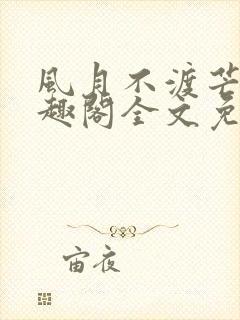 風月不渡芒
趣閣全文免
宙夜